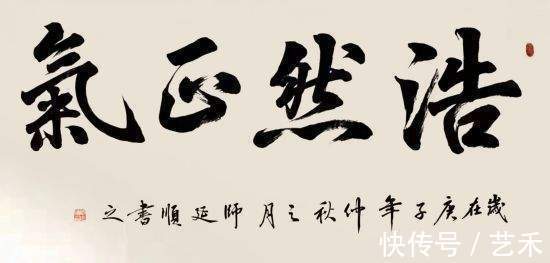 浩然正氣
歲在庚子年仲秋之月師延順書之
快传号／艺禾